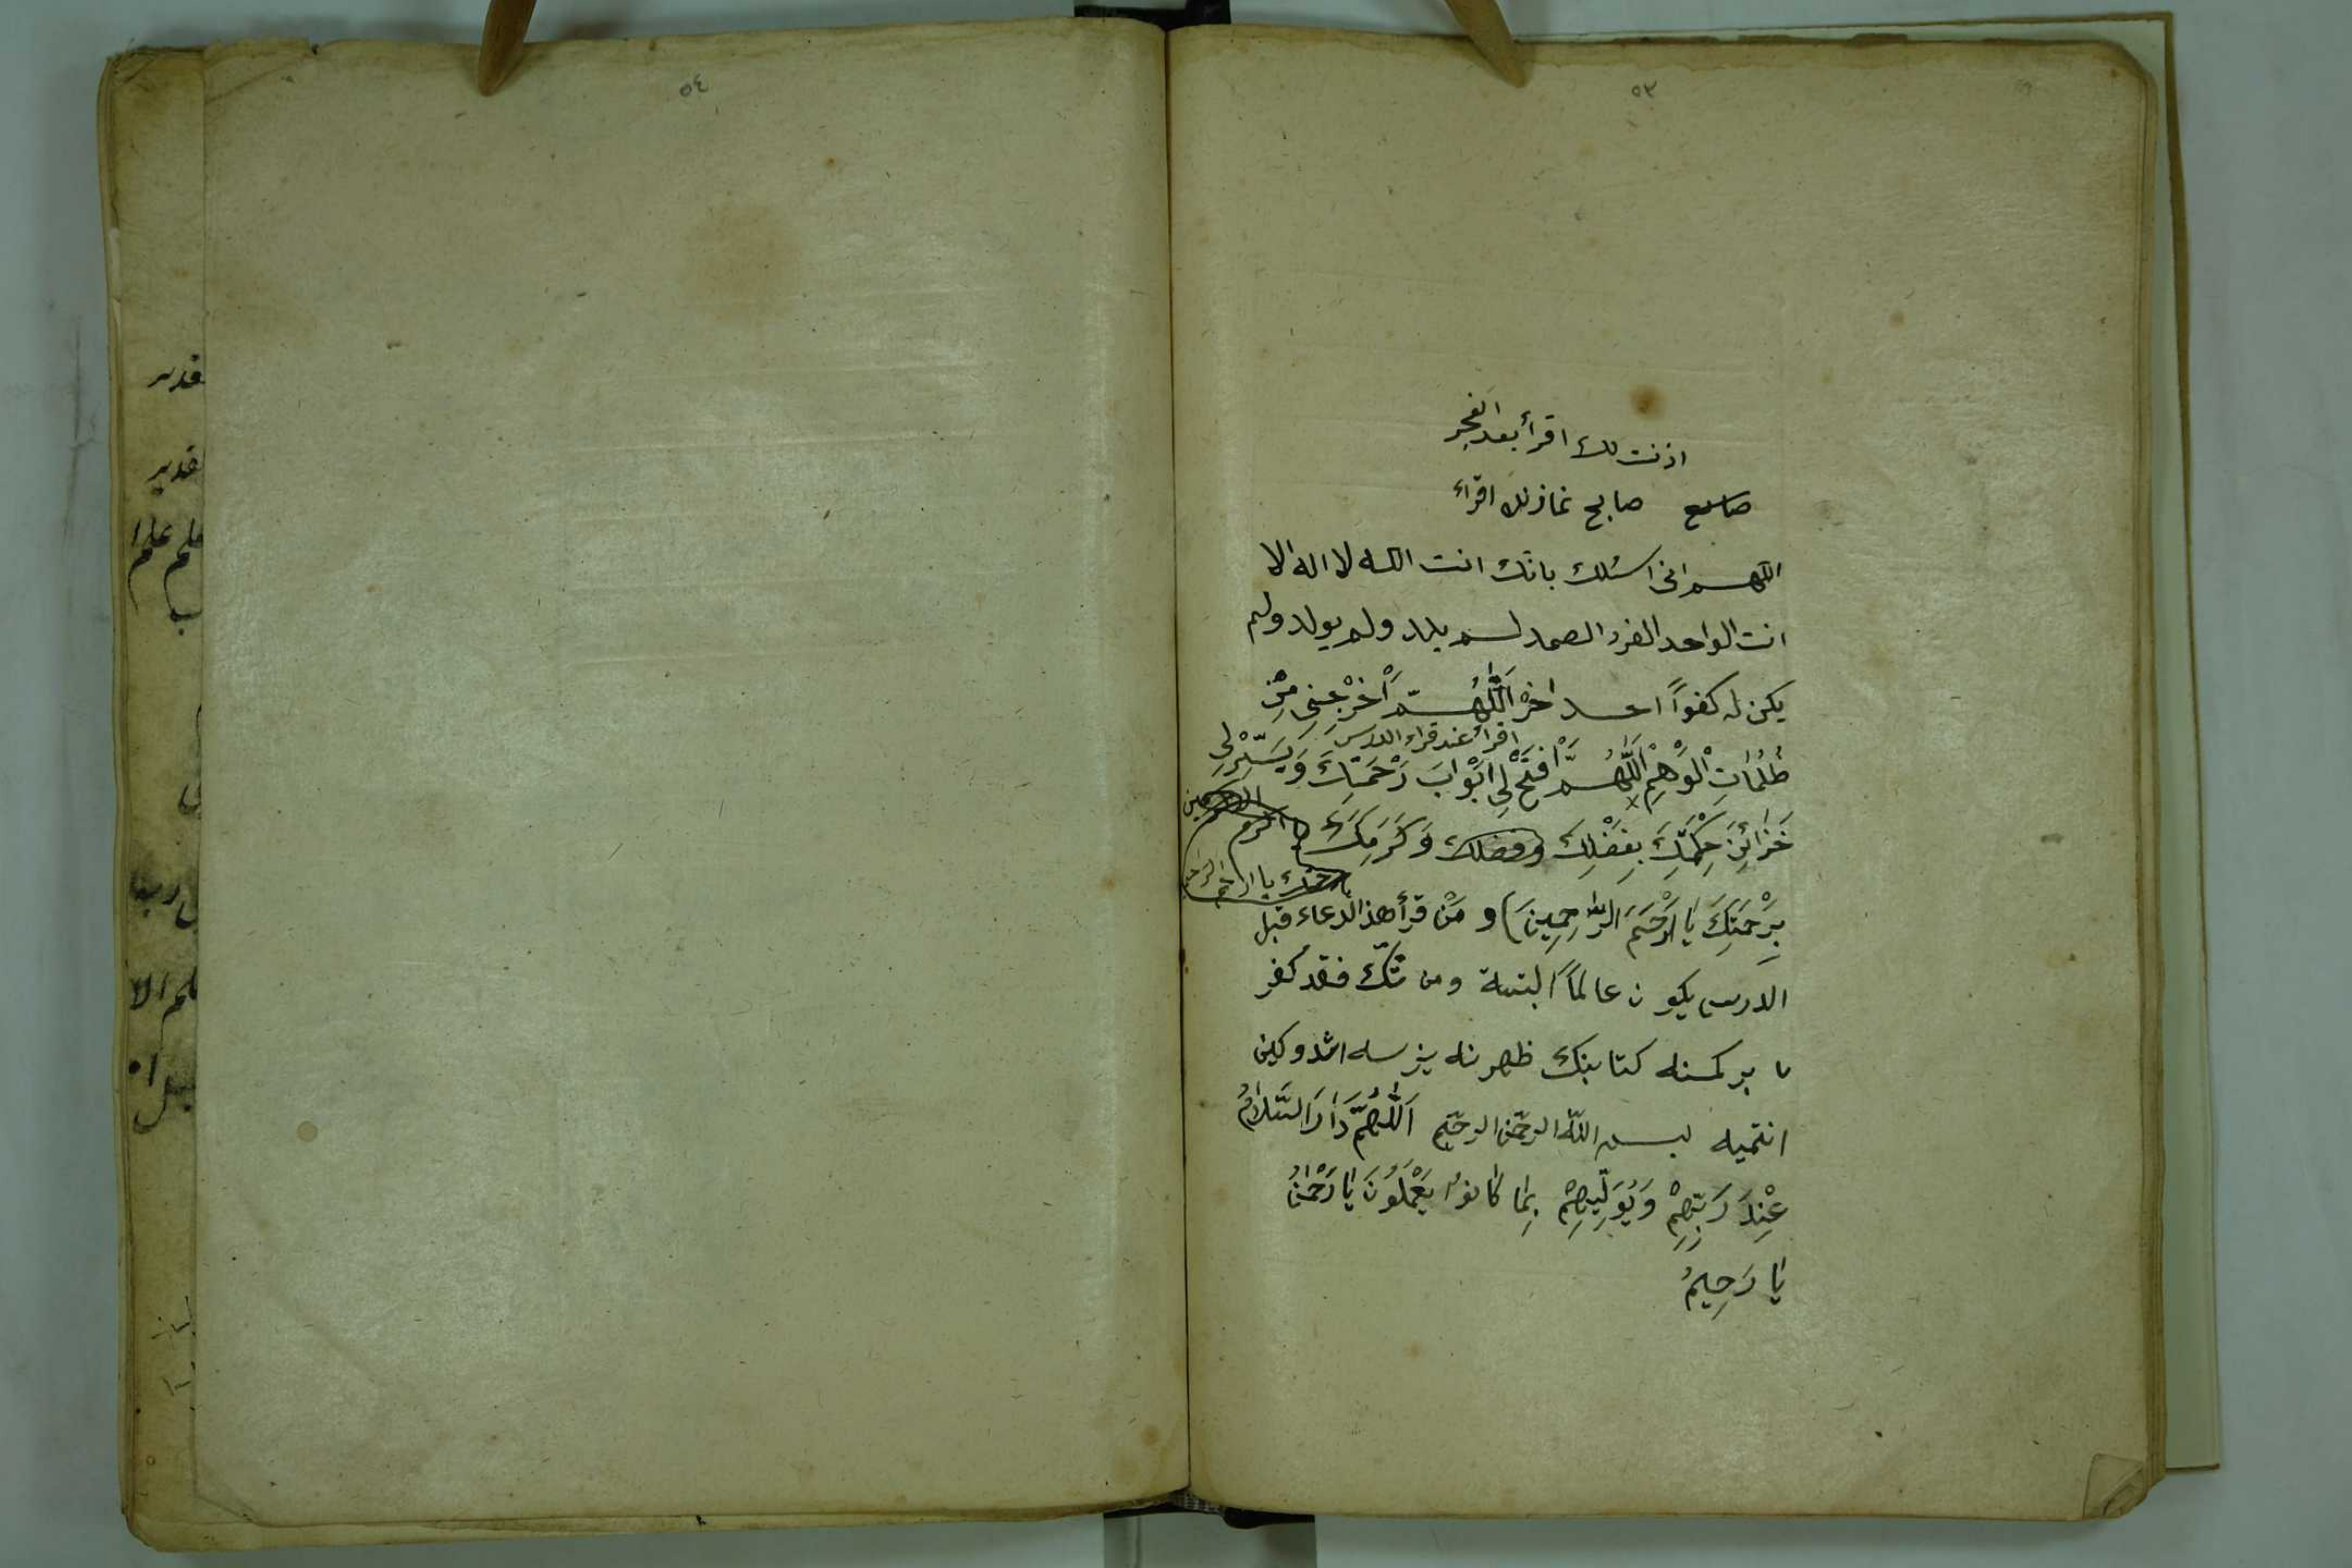 ٥٣
اذنت لك اقرأ بعد الفجر
صابح نمازنك اقراء
اللهم انى اسئلك بانك انت الله لا اله الا
انت الواحد الفرد الصمد لم يلد ولم يولد ولم
يكن له كفواً احد اخر اَللّٰهُمَّ اَخْرِجْنِى مِنْ
اقرأ عند قراء الدرس
ظُلُمَاتِ الْوَهْمِ اَللّٰهُمَّ افْتَحْ لِى اَبْوَابَ رَحْمَتِكَ وَيَسِّرْلِى
خَزَائِنَ حِكْمَتِكَ بِفَضْلِكَ وفضلك وَكَرَمِكَ يا اكرم
برحمتك يا ارحم الراحمين
بِرَحْمَتِكَ يَا اَرْحَمَ الرَّاحِمِينَ) و مَنْ قرأ هذا الدعاء قبل
الدرس يكون عالماً البتة ومن شكّ فقد كفر
بر كمسنه كتابنك ظهرنه يزسه
انتميه بسم الله الرحمن الرحيم اَللّٰهُمَّ دَارَ السَّلَامُ
عِنْدَ رَبِّهِمْ وَيُوَلِّيهِمْ بِمَا كَانُوا يَعْمَلُونَ يَا رَحْمٰنُ
يَا رَحِيمُ
٥٤
قدير
قدير